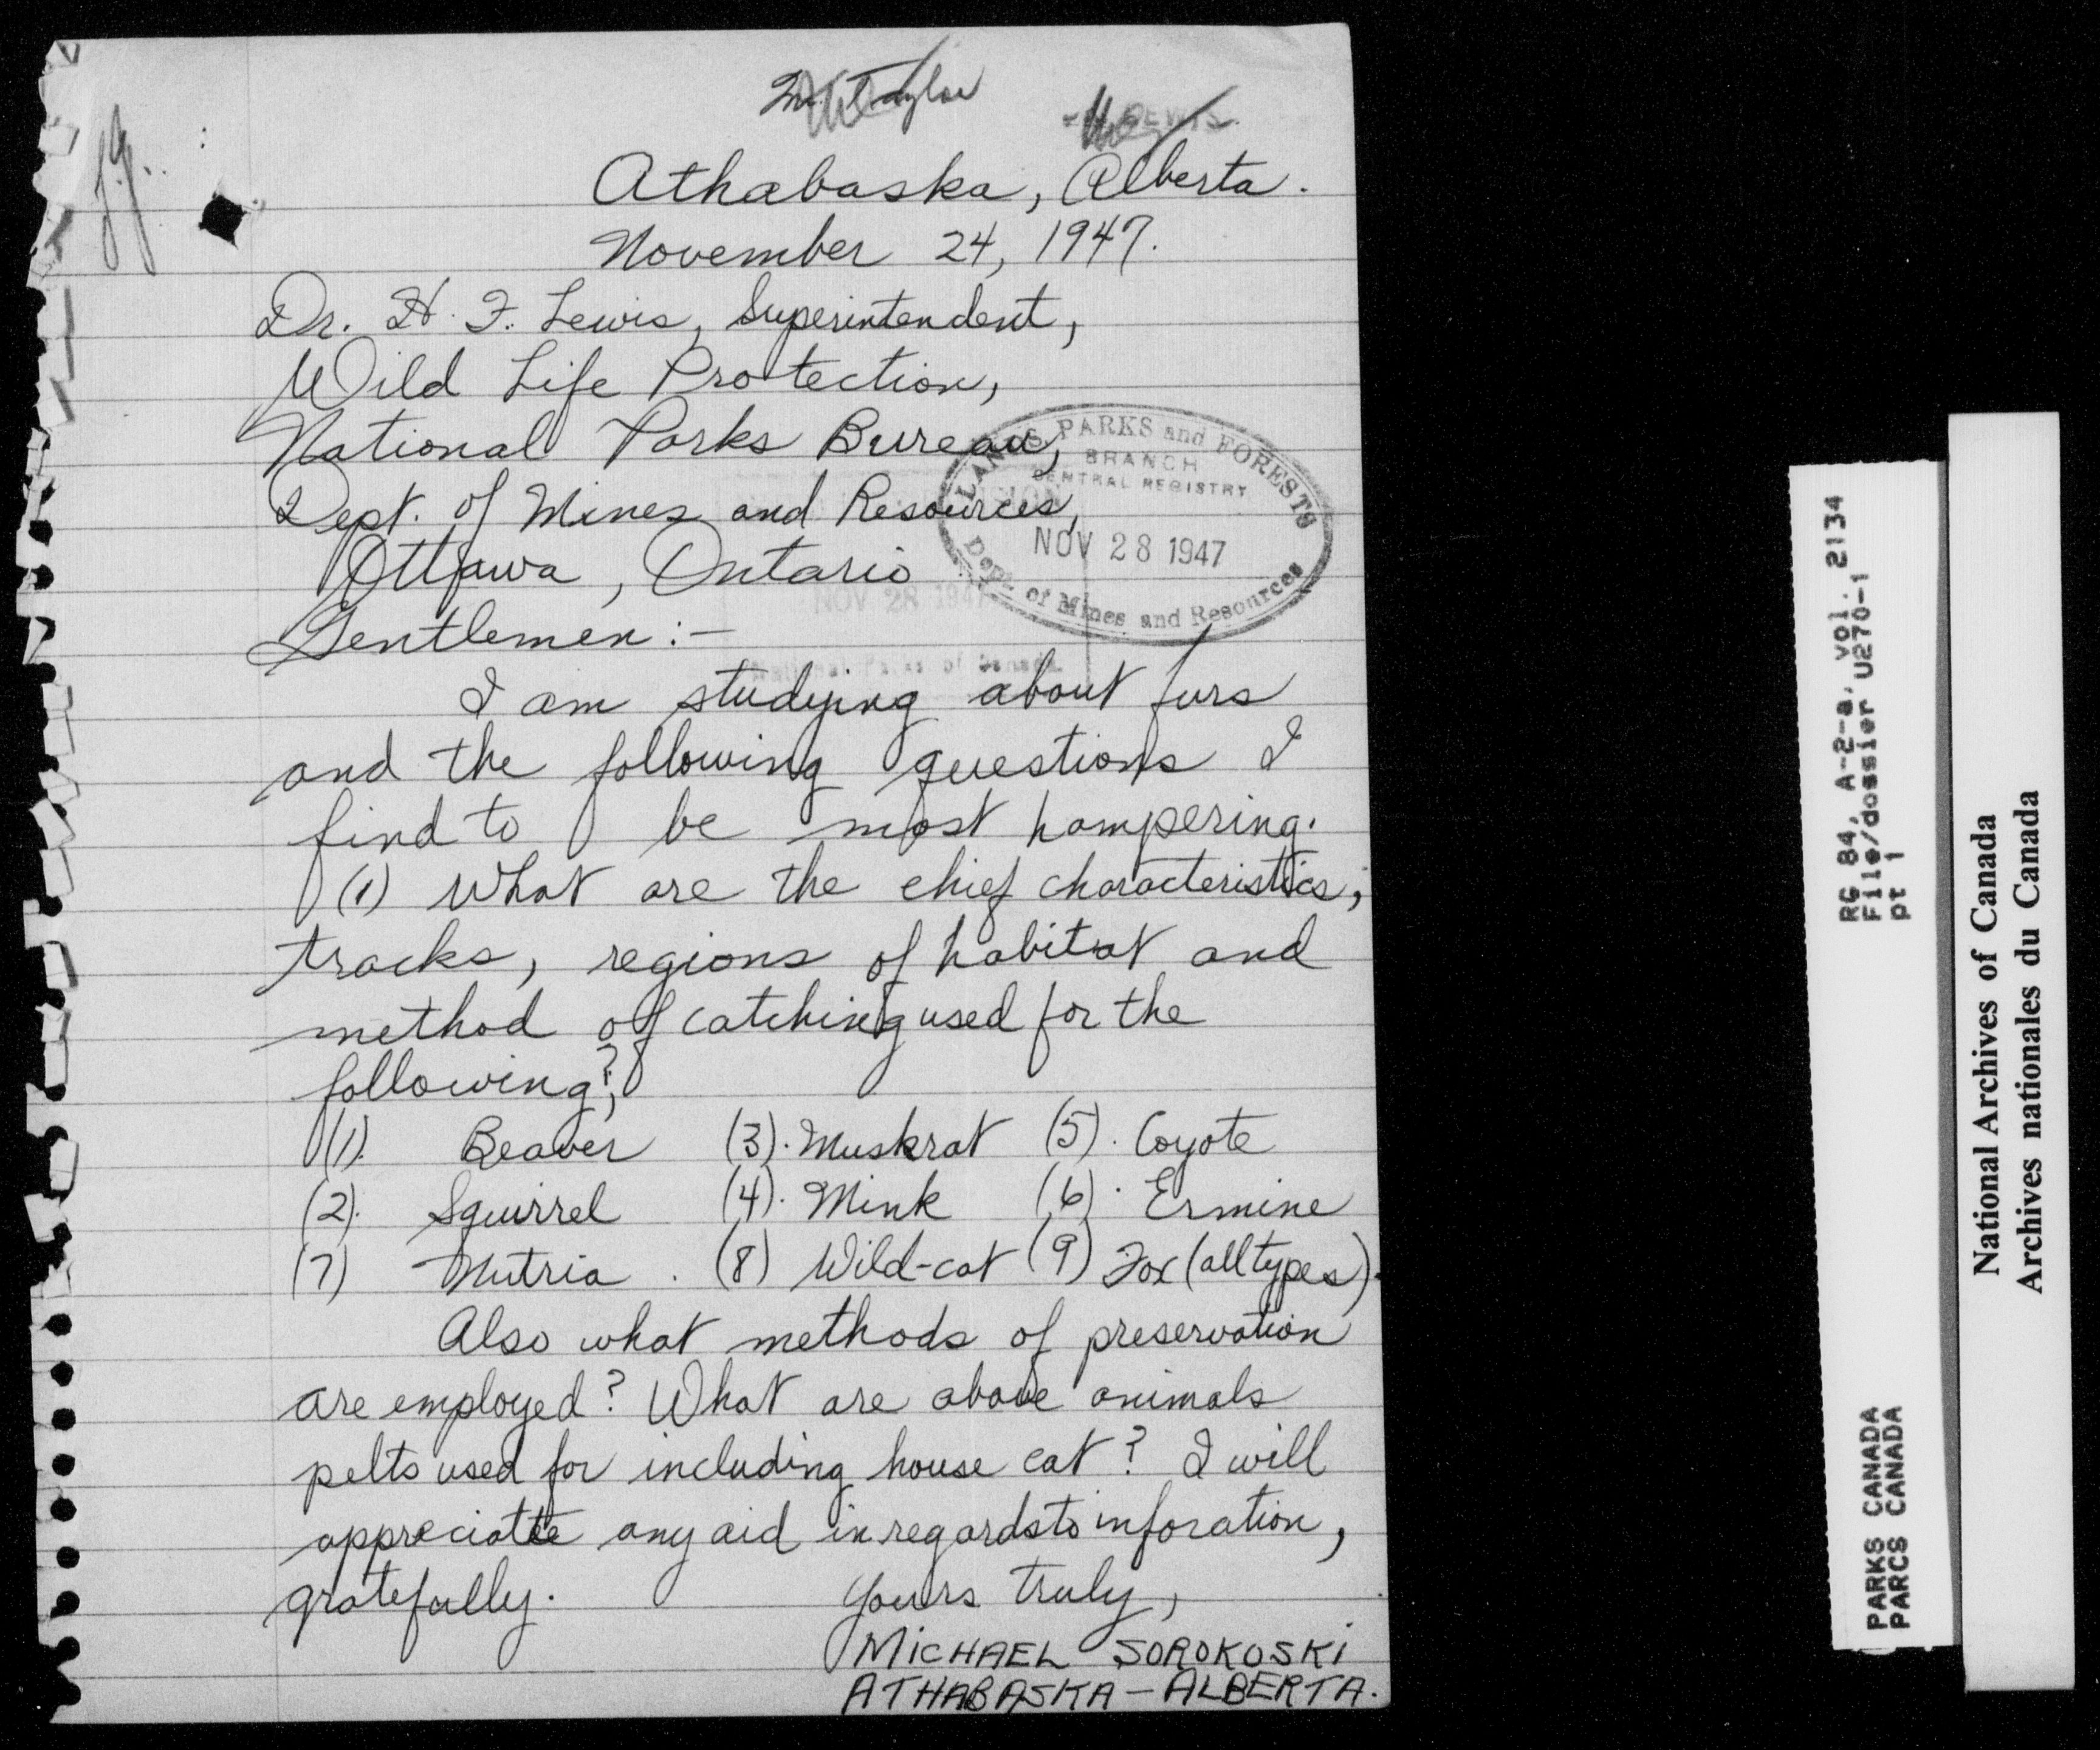 Mr. Taylor
LEWIS.
Athabaska, Alberta.
November 24, 1947.
Dr. H. F. Lewis, Superintendent,
Wild Life Protection,
National Parks Bureau,
Dept. of Mines and Resources,
Ottawa, Ontario
LANDS PARKS and FORESTS
BRANCH
CENTRAL REGISTRY
NOV 28 1947
Dept. of Mines and Resources
NOV 28 1947
National Parks of Canada
Gentlemen:-
I am studying about furs
and the following questions I
find to be most hampering.
(1) What are the chief characteristics,
tracks, regions of habitat and
method of catching used for the
following?;
(1). Beaver (3). Muskrat (5). Coyote
(2). Squirrel (4). Mink (6). Ermine
(7) Nutria. (8) Wild-cat (9) Fox (all types).
Also what methods of preservation
are employed? What are above animals
pelts used for including house cat? I will
appreciatte any aid in regards to inforation,
gratefully. Yours truly,
MICHAEL SOROKOSKI
ATHABASKA - ALBERTA.
RG 84, A-2-a, vol. 2134
File/dossier U270-1
pt 1
PARKS CANADA
PARCS CANADA
National Archives of Canada
Archives nationales du Canada